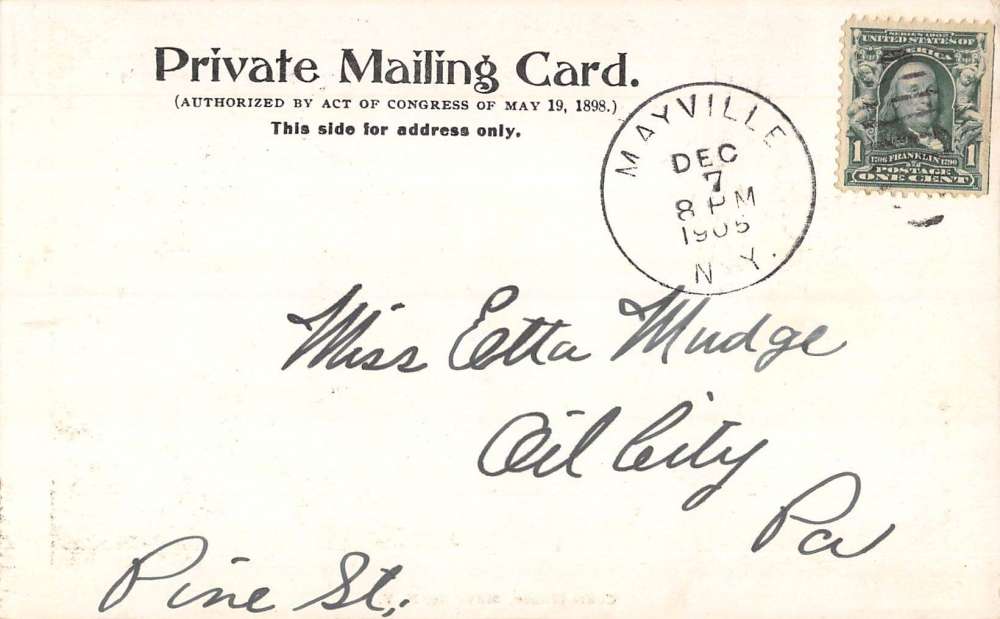 Private Mailing Card.
(AUTHORIZED BY ACT OF CONGRESS OF MAY 19, 1898.)
This side for address only.
MAYVILLE
DEC
7
8 PM
1905
N.Y.
SERIES 1902
UNITED STATES OF
AMERICA
1706 FRANKLIN 1790
1 POSTAGE 1
ONE CENT
Miss Etta Mudge
Oil City
Pa
Pine St.